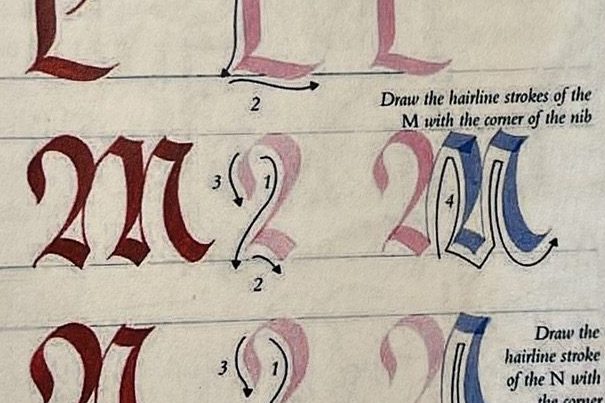 L L L
2
Draw the hairline strokes of the
M with the corner of the nib
M 3 1 4
2
N 3 1
Draw the
hairline stroke
of the N with
the corner